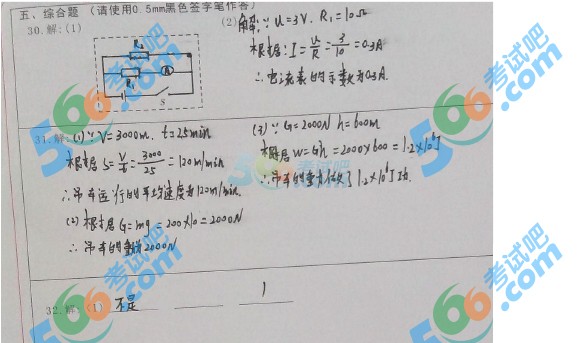 五、综合题 (请使用0.5mm黑色签字笔作答)
30.解:(1)
R₂
R₁
A
S
(2)解:∵U=3V. R₁=10Ω
根据:I=U/R=3/10=0.3A
∴电流表的示数为0.3A.
31.解:(1)∵V=3000m. t=25min
根据S=V/t=3000/25=120m/min
∴吊车运行的平均速度为120m/min.
(2)根据G=mg=200×10=2000N
∴吊车的重为2000N
(3)∵G=2000N h=600m
根据W=Gh=2000×600=1.2×10⁶J
∴吊车的重力做了1.2×10⁶J功.
32.解:(1) 不是 1
566考试吧
566考试吧
566考试吧
566考试吧